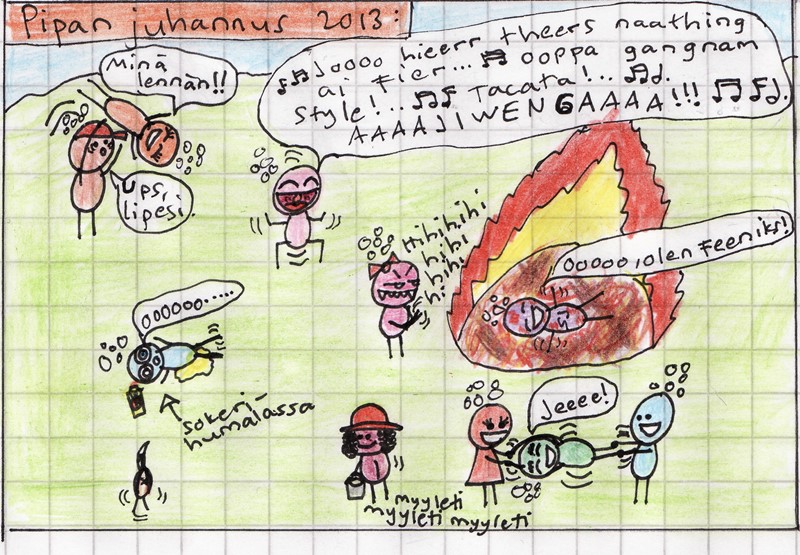 Pipan juhannus 2013:
Minä
lennän!!
Ups,
lipesi.
Joooo hieerr theers naathing
ai fier... ooppa gangnam
style!... Tacata!...
AAAAJIWENGAAAA!!!
Hihihihi
hihi
hihi
hi
Ooooo, olen Feeniks!
OOOOOO.....
sokeri-
humalassa
Jeeee!
myyleti
myyleti myyleti